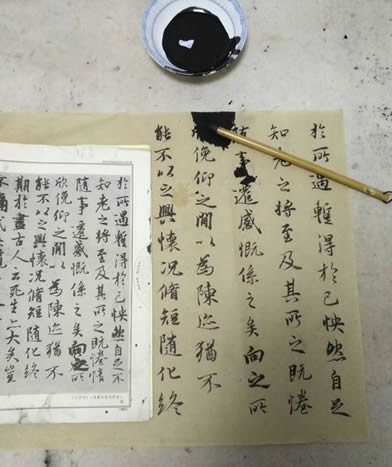 於所遇暫得於己怏然自足
知老之將至及其所之既惓
隨事遷感慨係之矣向之所
欣俛仰之間以為陳迹猶不
能不以之興懷況脩短隨化終
於所遇暫得於己怏然自足不
知老之將至及其所之既惓情
隨事遷感慨係之矣向之所
欣俛仰之間以為陳迹猶不
能不以之興懷況脩短隨化終
期於盡古人云死生亦大矣豈